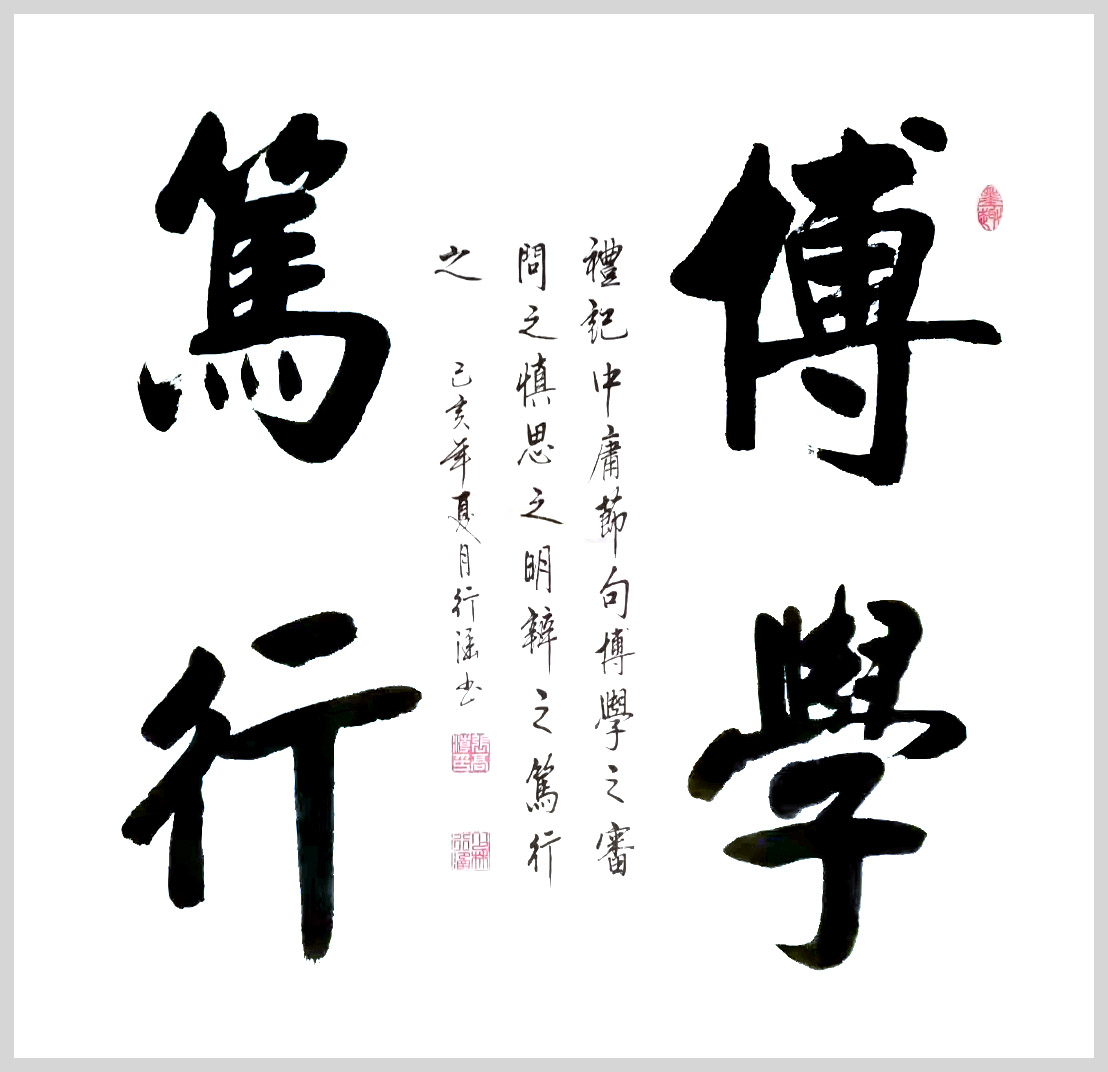 博學
篤行
禮記中庸節句博學之審
問之慎思之明辨之篤行
之
己亥年夏月行书